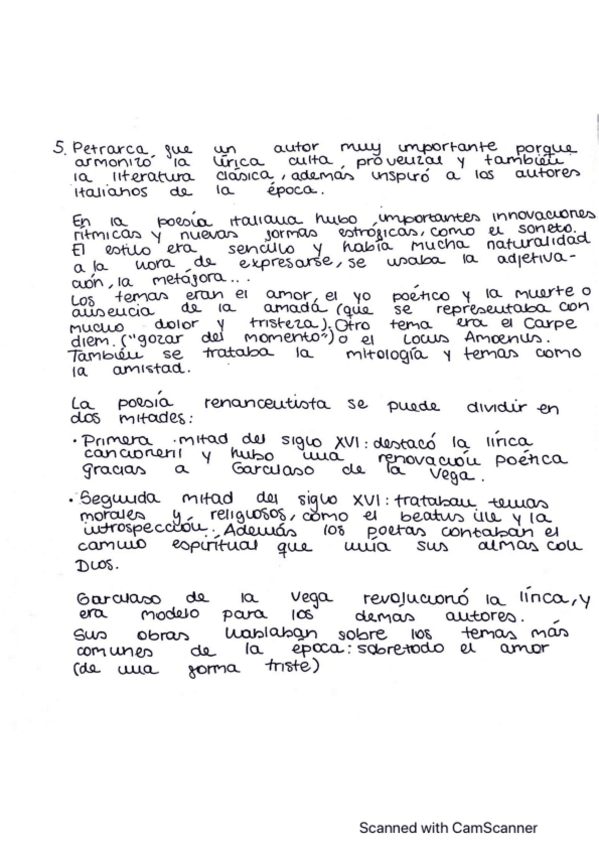 5. Petrarca fue un autor muy importante porque
armonizó la lírica culta provenzal y también
la literatura clásica, además inspiró a los autores
italianos de la época.
En la poesía italiana hubo importantes innovaciones
rítmicas y nuevas formas estróficas, como el soneto.
El estilo era sencillo y había mucha naturalidad
a la hora de expresarse, se usaba la adjetiva-
ción, la metáfora...
Los temas eran el amor, el yo poético y la muerte o
ausencia de la amada (que se representaba con
mucho dolor y tristeza). Otro tema era el Carpe
diem. ("gozar del momento") o el Locus Amoenus.
También se trataba la mitología y temas como
la amistad.
La poesía renancentista se puede dividir en
dos mitades:
· Primera mitad del siglo XVI: destacó la lírica
cancioneril y hubo una renovación poética
gracias a Garcilaso de la Vega.
· Segunda mitad del siglo XVI: trataban temas
morales y religiosos, como el beatus ille y la
introspección. Además los poetas contaban el
camino espiritual que unía sus almas con
Dios.
Garcilaso de la Vega revolucionó la lírica, y
era modelo para los demás autores.
Sus obras hablaban sobre los temas más
comunes de la época: sobretodo el amor
(de una forma triste)
Scanned with CamScanner